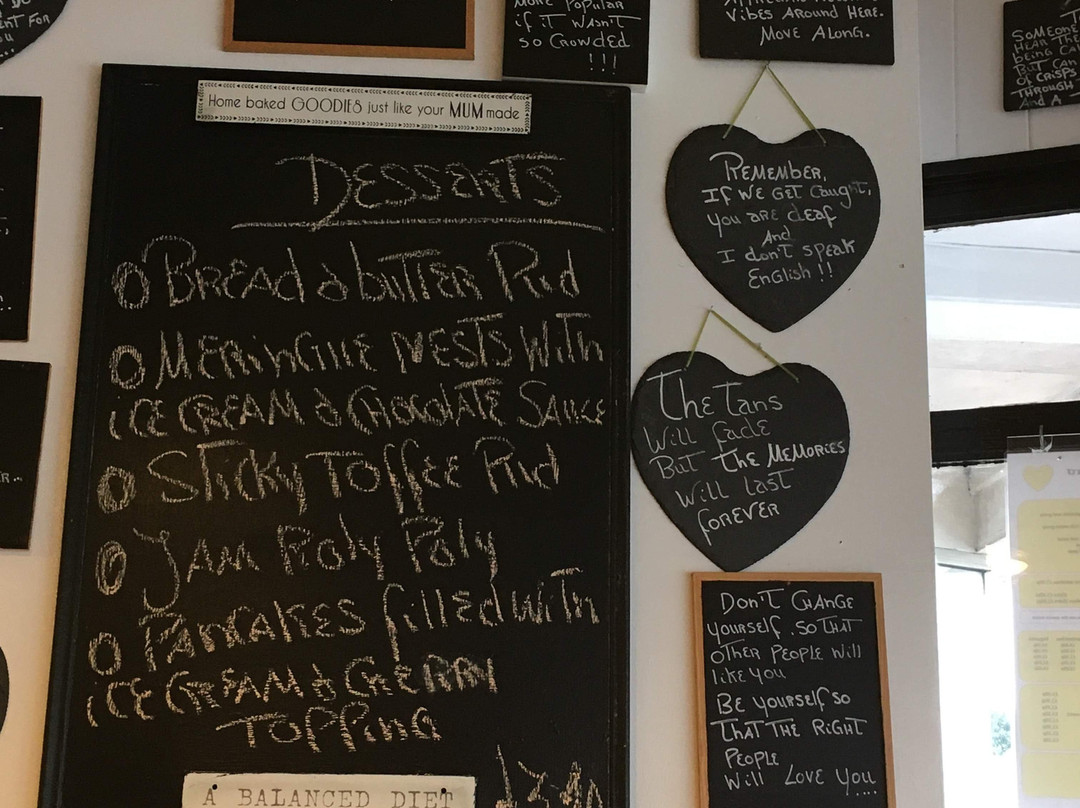 ENT FOR
MORE POPULAR
if iT WASN'T
so CROWDED
!!!
VIBES AROUND HERE.
MOVE ALONG.
SOMEONE
HEAR THE
being
BUT CAN
CRISPS
THROUGH
AND A
Home baked GOODIES just like your MUM made
DESSERTS
BREAD & bUTTER PUd
MERINGUE NESTS WiTH
iCE CREAM & CHOCOLATE SAUCE
STicky Toffee Pud
JAM Roly Poly
PANCAKES filled WiTH
iCE CREAM & CHERRY
TOPPinG
A BALANCED DIET
REMEMBER,
If WE GET CAUGHT,
you ARE dEAf
And
I don't SPEAK
ENGLiSH !!
THE TANS
Will fadE
BuT THE MEMORiES
will last
foREVER
DON'T CHANGE
YOURSELf . SO THAT
OTHER PEOPLE Will
likE you
BE YOURSELf SO
THAT THE RiGHT
PEOPLE
Will LOVE YOU....